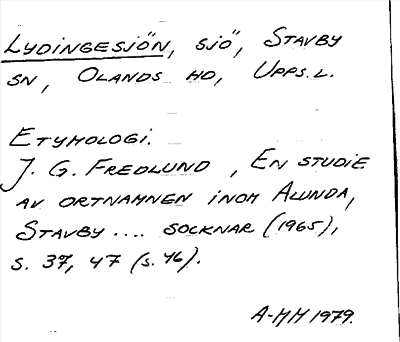 LYDINGESJÖN, SJÖ, STAVBY
SN, OLANDS HD, UPPS. L.
ETYMOLOGI.
J. G. FREDLUND, EN STUDIE
AV ORTNAMNEN INOM ALUNDA,
STAVBY .... SOCKNAR (1965),
S. 37, 47 (S. 46).
A-MM 1979.